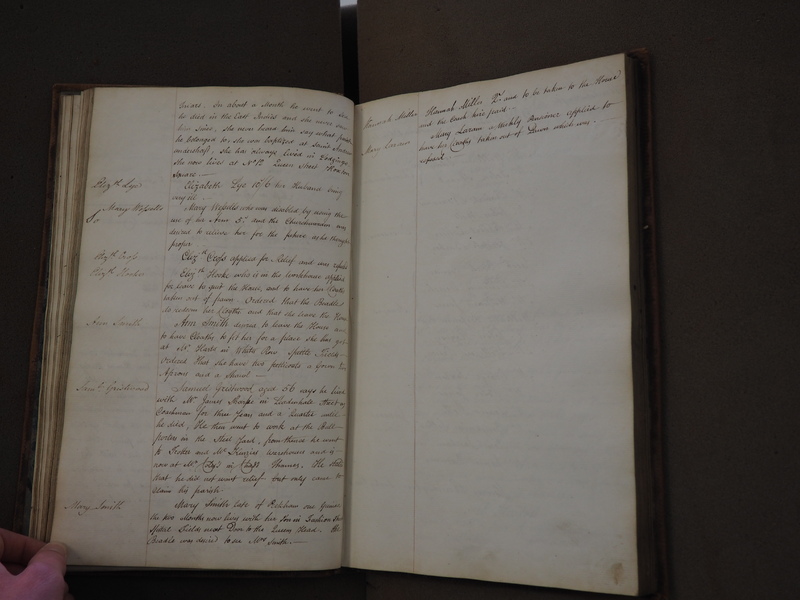 onians. In about a Month he went to Sea
he died in the East Indies and she never saw
him since, She never heard him say what parish
he belonged to, she was baptized at Saint Andrew
undershaft. She has always lived in Lodgings
She now lives at No 12 Queen Street Hoxton
Square
Elizth Lye
Elizabeth Lye 10/6 her Husband being
very ill
Mary Wessells
Mary Wessells who was disabled by using the
use of her Arm 5s/ and the Churchwarden was
desired to relieve her for the future as he thought
proper
Elizth Cross
Elizth Cross applied for Relief and was refused
Elizth Hooke
Elizth Hooke who is in the workhouse applied
for leave to quit the House, and to have her Cloaths
taken out of pawn Ordered that the Beadle
do redeem her Cloaths and that she leave the House
Ann Smith
Ann Smith desires to leave the House and
to have Cloaths to fit her for a place she has got
at Mr Harts in White Row Spittle Fields
Ordered that she have two petticoats a Gown Two
Aprons and a Shawl
Saml Grestwood
Samuel Grestwood, aged 56 says he lived
with Mr James Sharpe in Leadenhall Street as
Coachman for three Years and a Quarter until
he died, He then went to work at the Ball
porters in the Steel Yard, from thence he went
to and Mr warehouse and is
now at Mr in Thames. He states
that he did not want relief but only came to
claim his parish
Mary Smith
Mary Smith late of Peckham one Game
the two Months now lives with her Son in Fashion Street
Spittle Fields next Door to the Queens Head. The
Beadle was desired to see Mrs Smith
Hannah Miller
Hannah Miller 2s/ and to be taken to the House
and the Coach hire paid
Mary Laram
Mary Laram a Weekly Pensioner applied to
have her Cloaths taken out of Pawn which was
refused